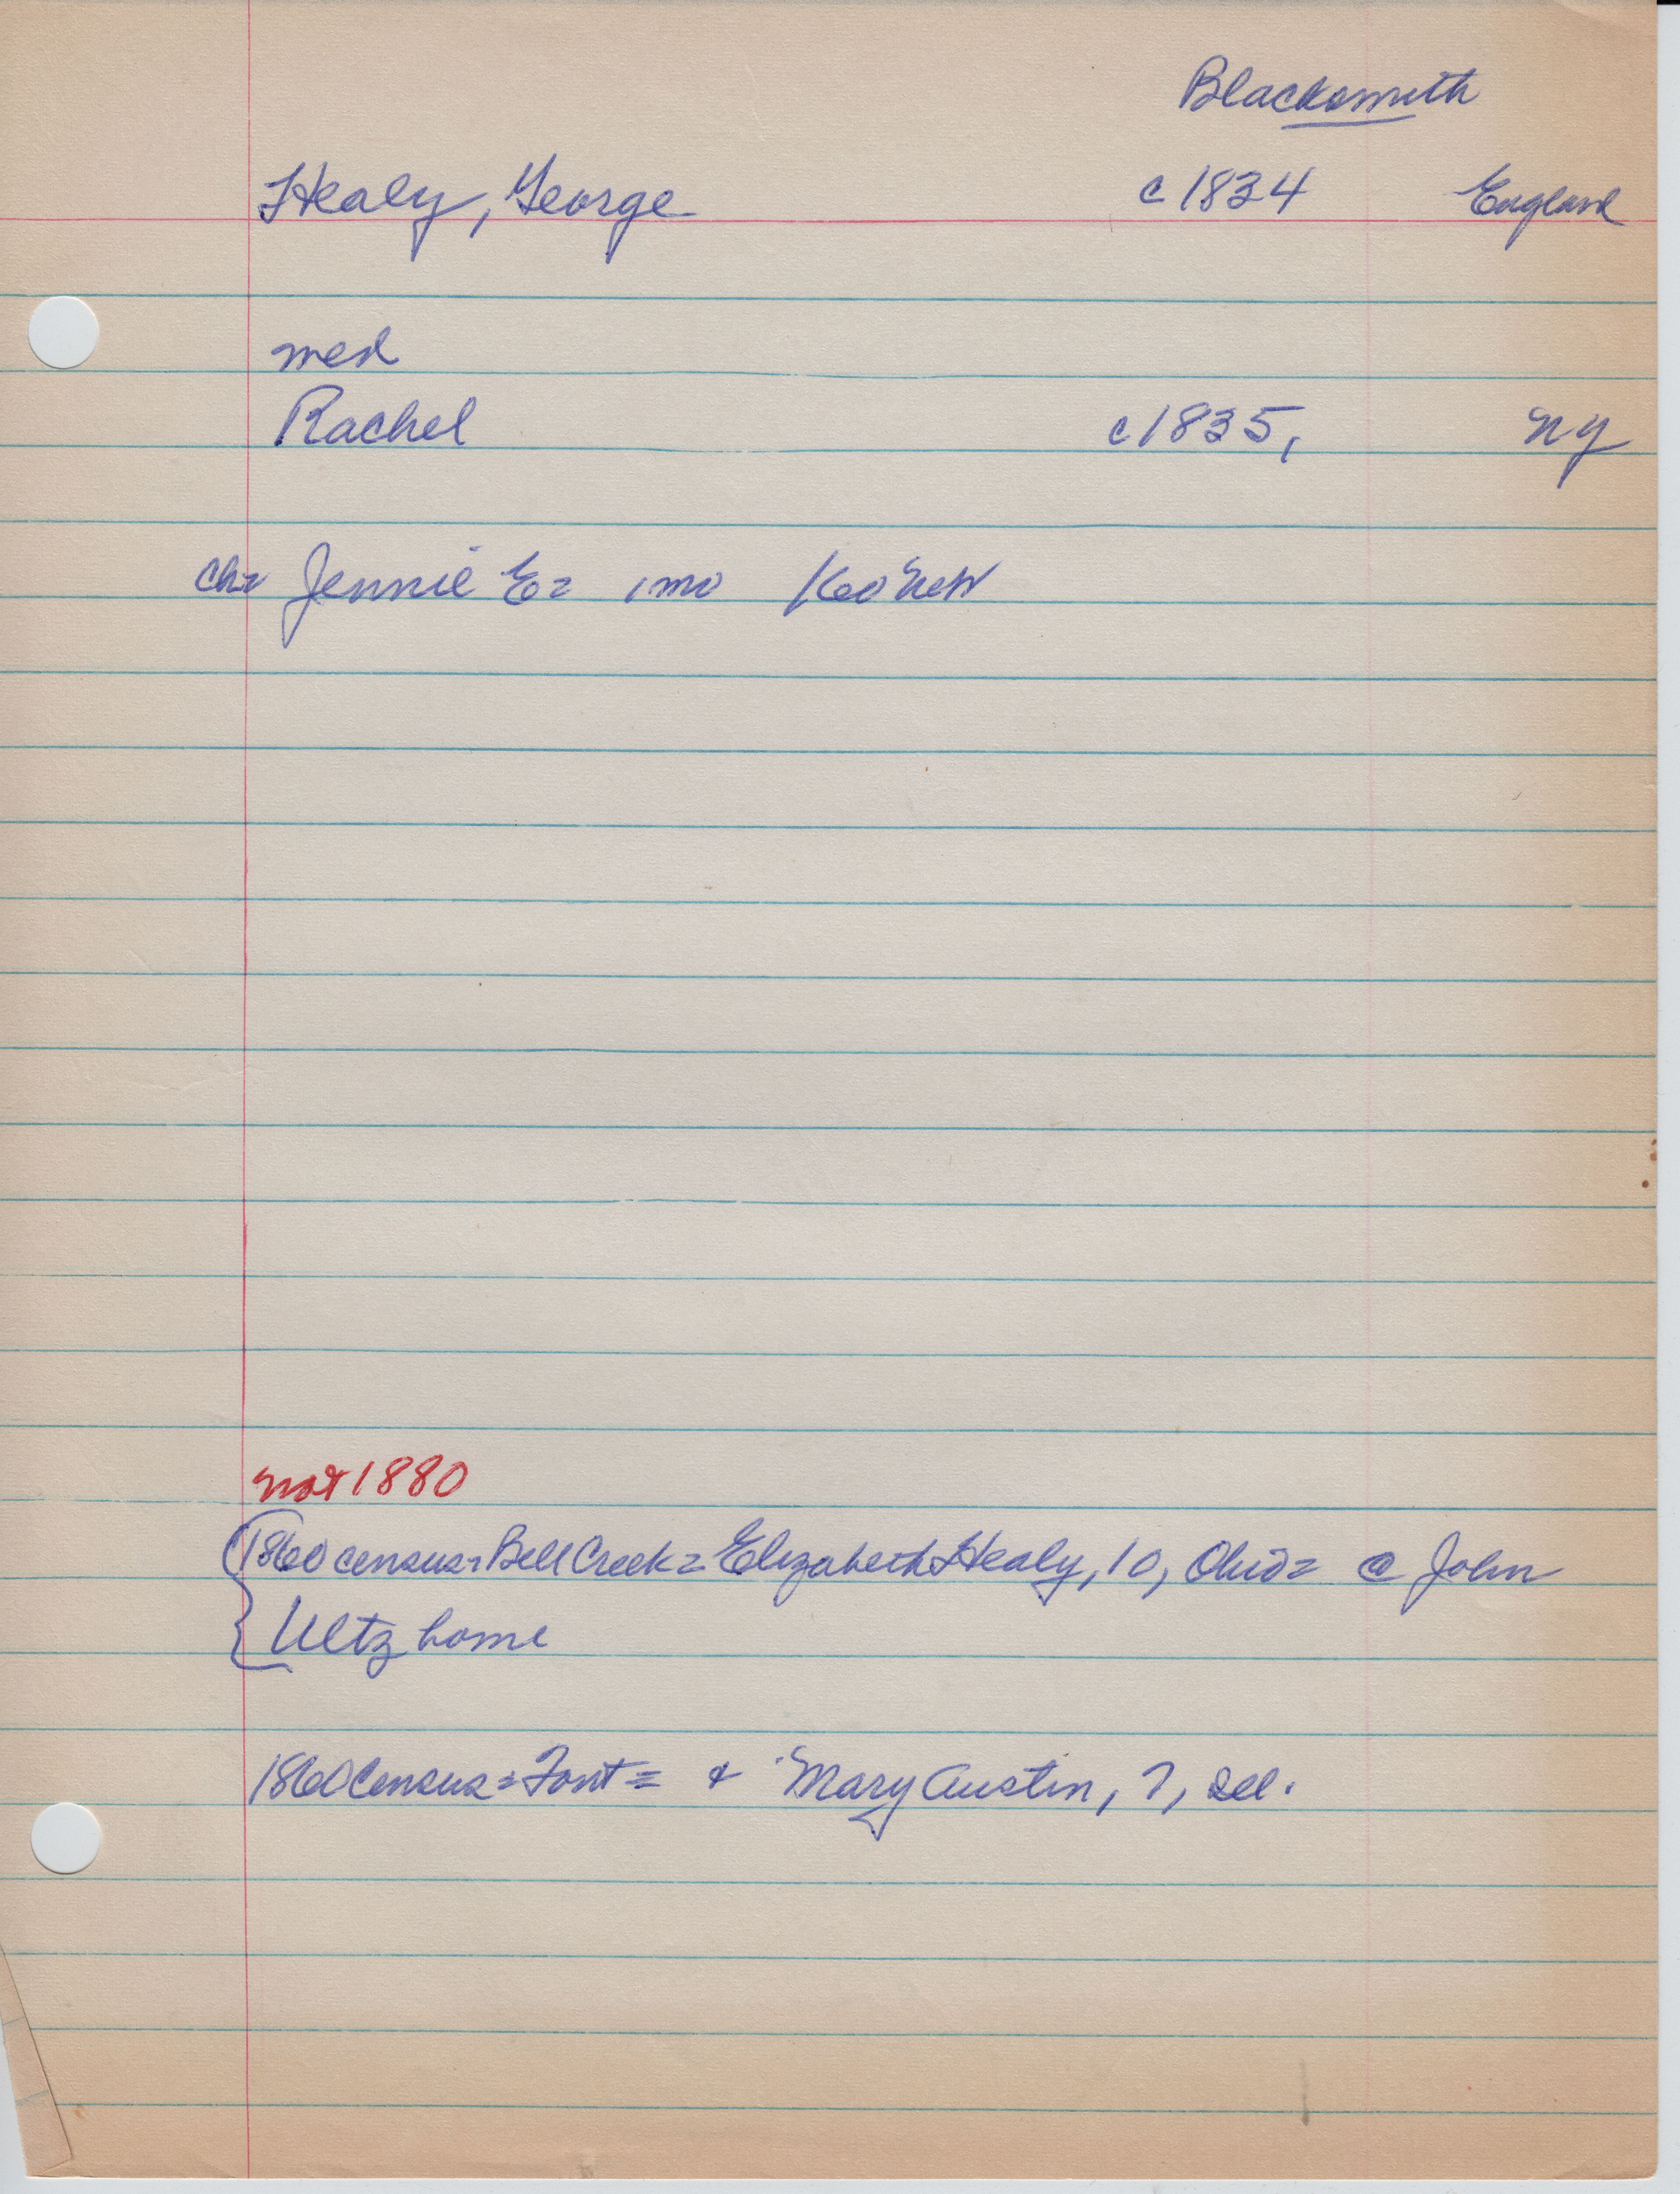 Blacksmith
Healy, George c 1834 England
med
Rachel c 1835, NY
Ch= Jennie E= 1 mo 1860 Neb
not 1880
1860 census= Bell Creek= Elizabeth Healy, 10, Ohio= @ John
Uetz home
1860 Census= Font= & Mary Austin, 7, Ill.